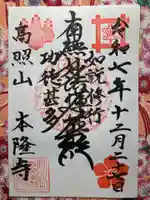 令和七年十二月二日
如説修行
南無妙法蓮華経
功徳甚多
高照山
本隆寺